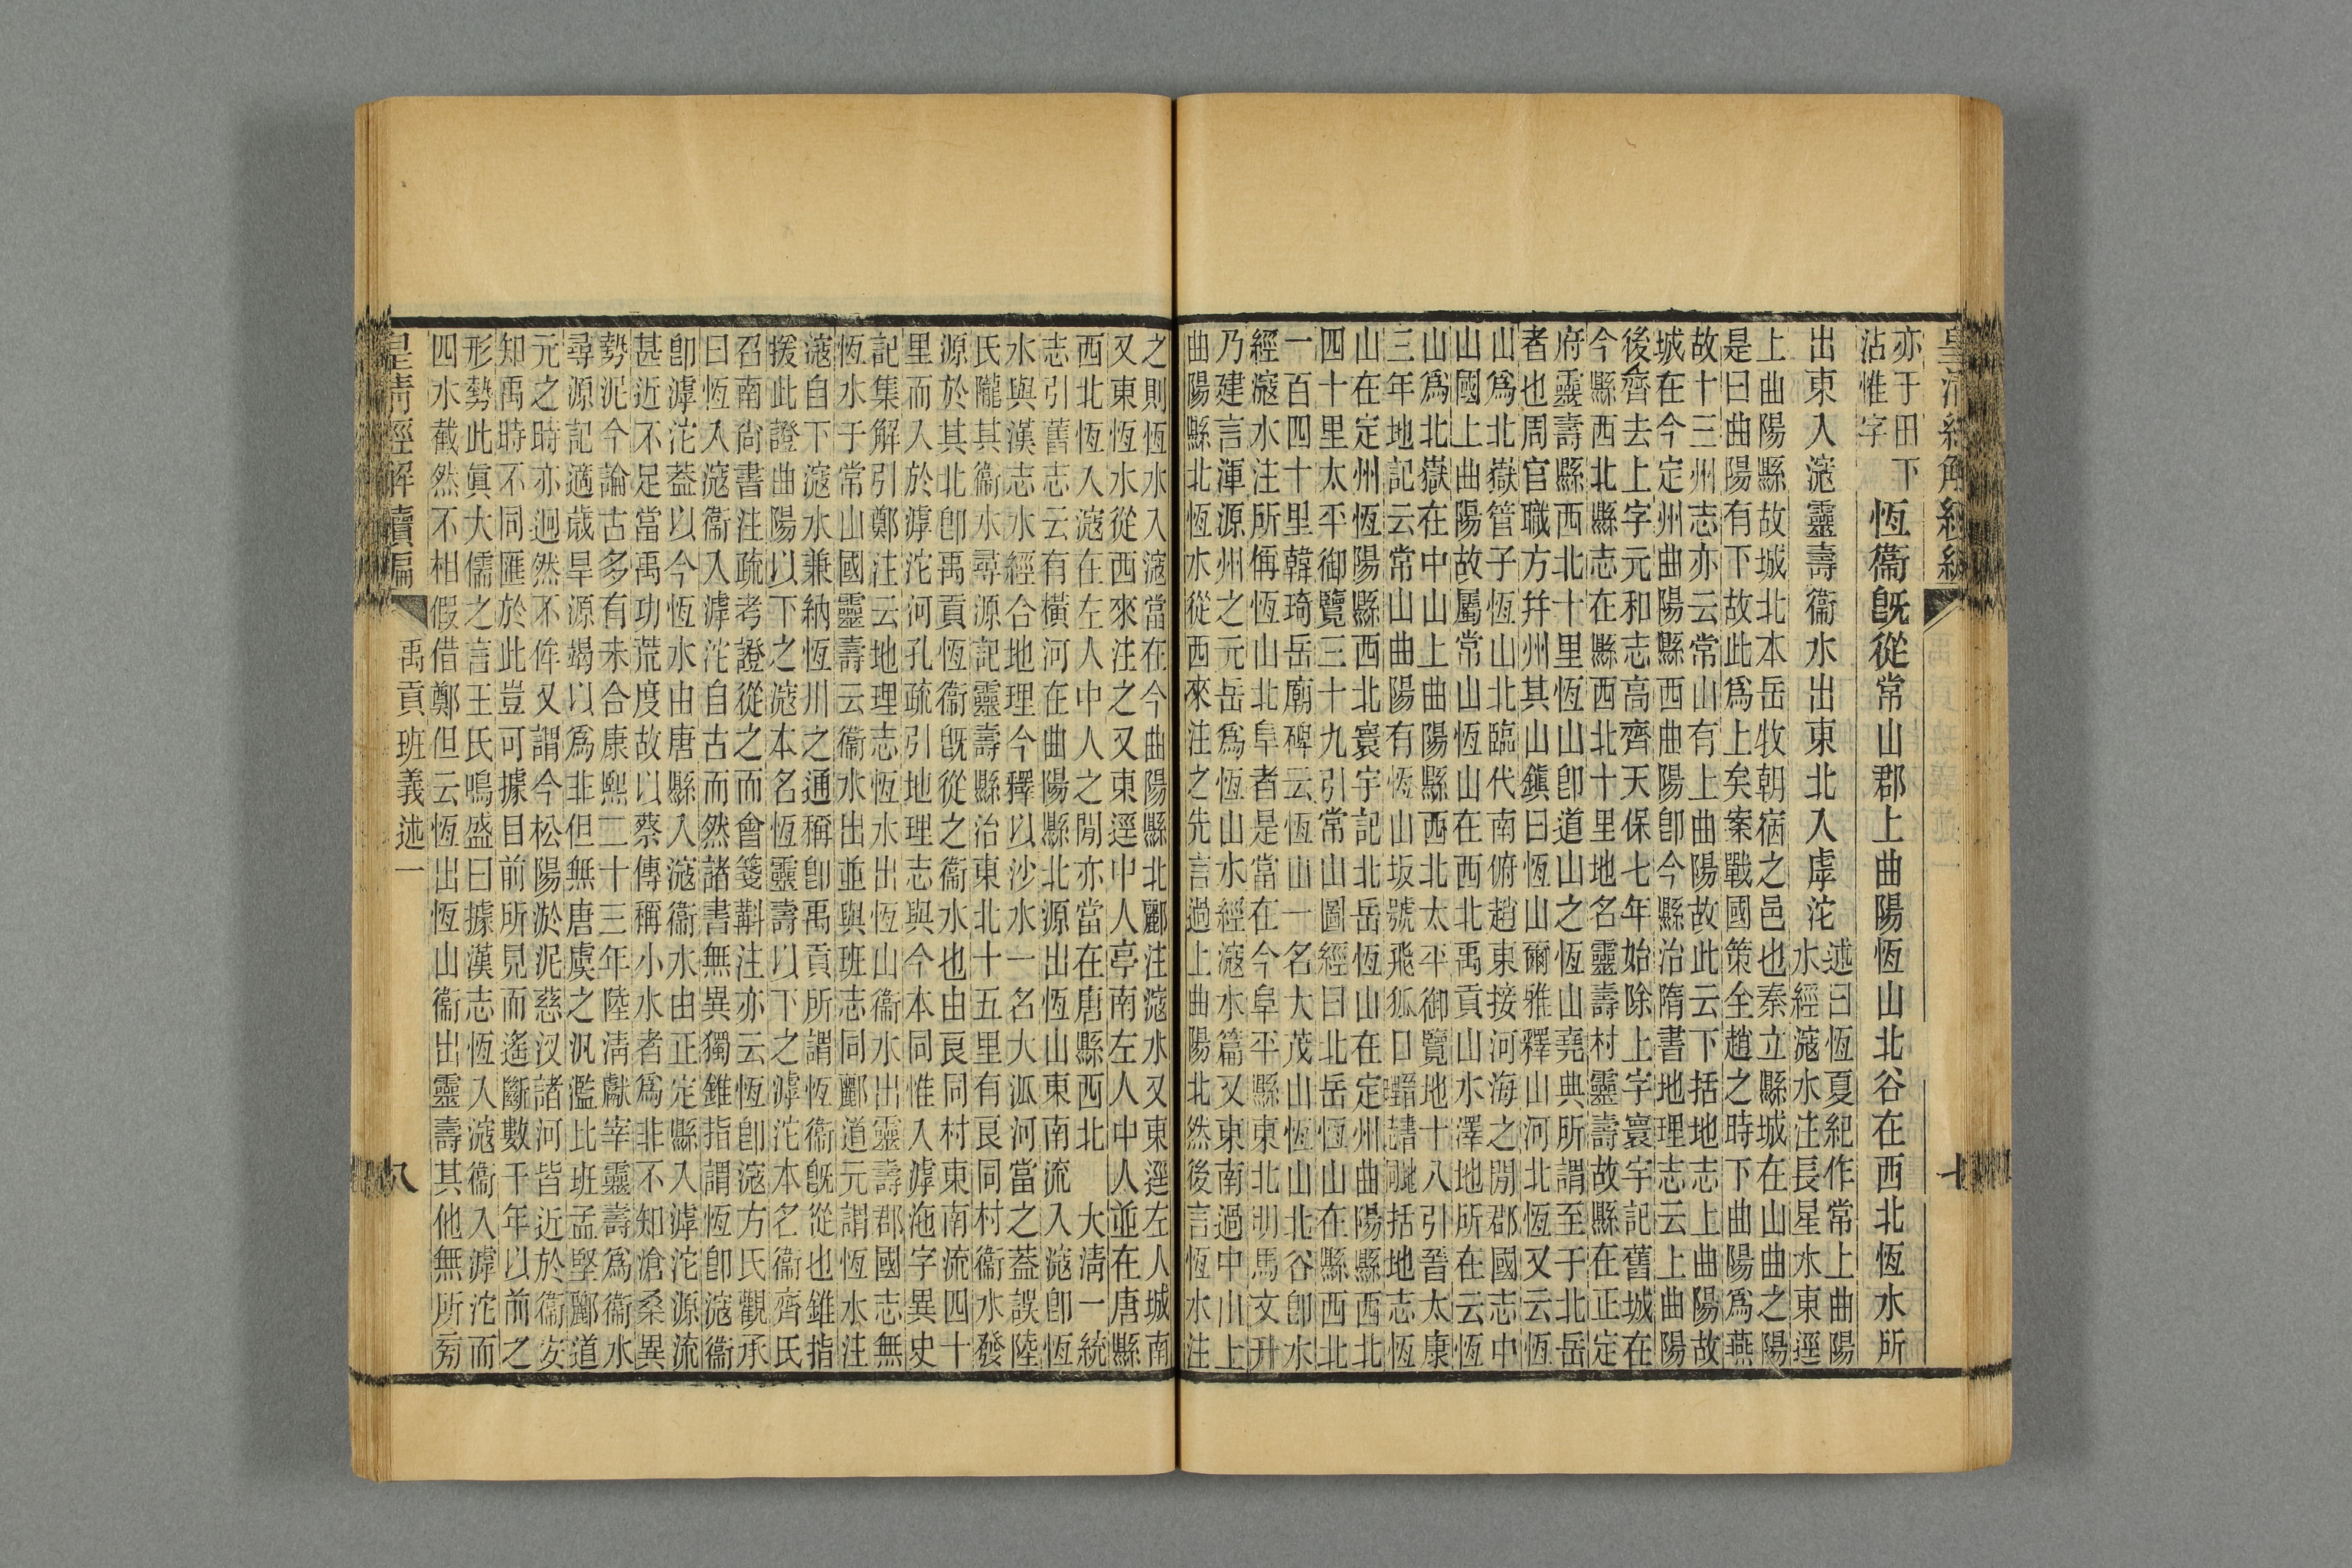 皇清經解續編
十
亦于田下
沾惟字
恆衞旣從常山郡上曲陽恆山北谷在西北恆水所
出東入滱靈壽衞水出東北入虖沱
述曰恆夏紀作常上曲陽
水經滱水注長星水東逕
上曲陽縣故城北本岳牧朝宿之邑也秦立縣城在山曲之陽
是曰曲陽有下故此爲上矣案戰國策全趙之時下曲陽爲燕
故十三州志亦云常山有上曲陽故此云下括地志上曲陽故
城在今定州曲陽縣西曲陽卽今縣治隋書地理志云上曲陽
後齊去上字元和志高齊天保七年始除上字寰宇記舊城在
今縣西北縣志在縣西北十里地名靈壽村靈壽故縣在正定
府靈壽縣西北十里恆山卽道山之恆山堯典所謂至于北岳
者也周官職方幷州其山鎭曰恆山爾雅釋山河北恆又云恆
山爲北嶽管子恆山北臨代南俯趙東接河海之閒郡國志中
山國上曲陽故屬常山恆山在西北禹貢山水澤地所在云恆
山爲北嶽在中山上曲陽縣西北太平御覽地十八引晉太康
三年地記云常山曲陽有恆山坂號飛狐口黯諸䶮括地志恆
山在定州恆陽縣西北寰宇記北岳恆山在定州曲陽縣西北
四十里太平御覽三十九引常山圖經曰北岳恆山在縣西北
一百四十里韓琦岳廟碑云恆山一名大茂山恆山北谷卽水
經滱水注所偁恆山北阜者是當在今阜平縣東北明馬文升
乃建言渾源州之元岳爲恆山水經滱水篇又東南過中山上
曲陽縣北恆水從西來注之先言過上曲陽北然後言恆水注
之則恆水入滱當在今曲陽縣北酈注滱水又東逕左人城南
又東恆水從西來注之又東逕中人亭南左人中人並在唐縣
西北恆入滱在左人中人之閒亦當在唐縣西北大淸一統
志引舊志云有橫河在曲陽縣北源出恆山東南流入滱卽恆
水與漢志水經合地理今釋以沙水一名大派河當之蓋誤陸
氏隴其衞水尋源記靈壽縣治東北十五里有良同村衞水發
源於其北卽禹貢恆衞旣從之衞水也由良同村東南流四十
里而入於滹沱河孔疏引地理志與今本同惟入滹沲字異史
記集解引鄭注云地理志恆水出恆山衞水出靈壽郡國志無
恆水于常山國靈壽云衞水出並與班志同酈道元謂恆水注
滱自下滱水兼納恆川之通稱卽禹貢所謂恆衞旣從也錐指
援此證曲陽以下之滱本名恆靈壽以下之滹沱本名衞齊氏
召南尙書注疏考證從之而會箋斠注亦云恆卽滱方氏觀承
曰恆入滱衞入滹沱自古而然諸書無異獨錐指謂恆卽滱衞
卽滹沱蓋以今恆水由唐縣入滱衞水由正定縣入滹沱源流
甚近不足當禹功荒度故以蔡傳稱小水者爲非不知滄桑異
勢泥今論古多有未合康熙二十三年陸淸獻宰靈壽爲衞水
尋源記適歲旱源竭以爲非但無唐虞之汎濫比班孟堅酈道
元之時亦迥然不侔又謂今松陽淤泥慈汊諸河皆近於衞安
知禹時不同匯於此豈可據目前所見而遙斷數千年以前之
形勢此眞大儒之言王氏鳴盛曰據漢志恆入滱衞入滹沱而
四水截然不相假借鄭但云恆出恆山衞出靈壽其他無所㫄
皇淸經解續編
禹貢班義述一
八